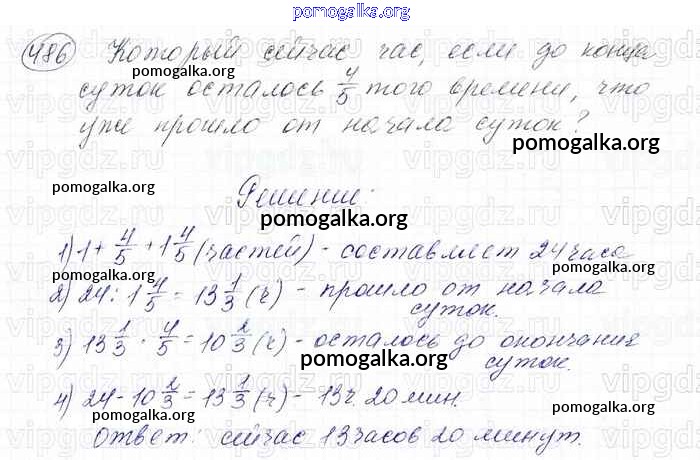 pomogalka.org
486 Который сейчас час, если до конца
суток осталось 4/5 того времени, что
уже прошло от начала суток?
Решение:
1) 1 + 4/5 + 1 4/5 (частей) - составляет 24 часа
2) 24 : 1 4/5 = 13 1/3 (ч) - прошло от начала
суток.
3) 13 1/3 · 4/5 = 10 2/3 (ч) - осталось до окончания
суток.
4) 24 - 10 2/3 = 13 1/3 (ч) - 13 ч. 20 мин.
Ответ: сейчас 13 часов 20 минут.
pomogalka.org
pomogalka.org
pomogalka.org
pomogalka.org
pomogalka.org
pomogalka.org
pomogalka.org
pomogalka.org
vipgdz.ru